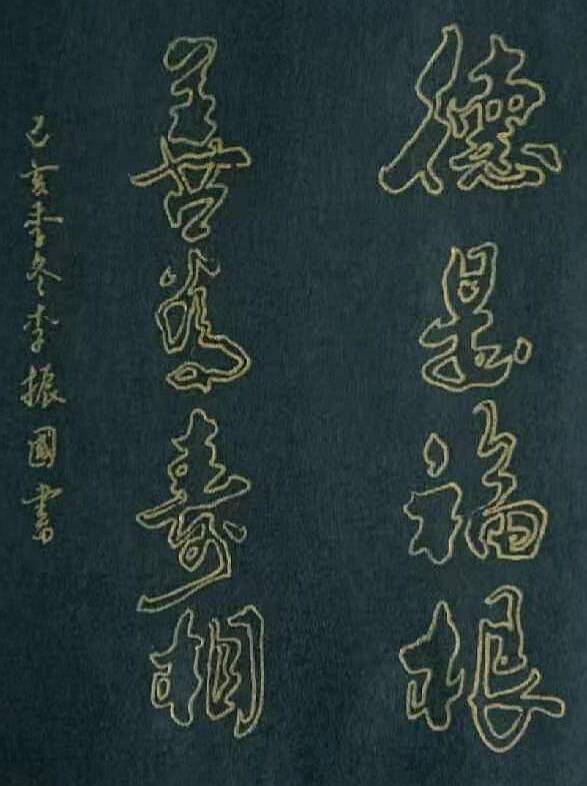 德是福根
善為壽相
己亥季冬李振國書